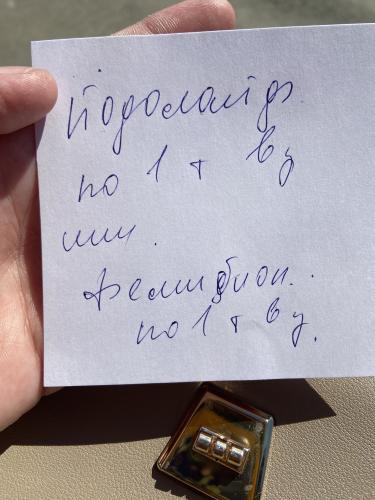 Йодомарин
по 1 т в у
или.
Фемибион.
по 1 т в у.